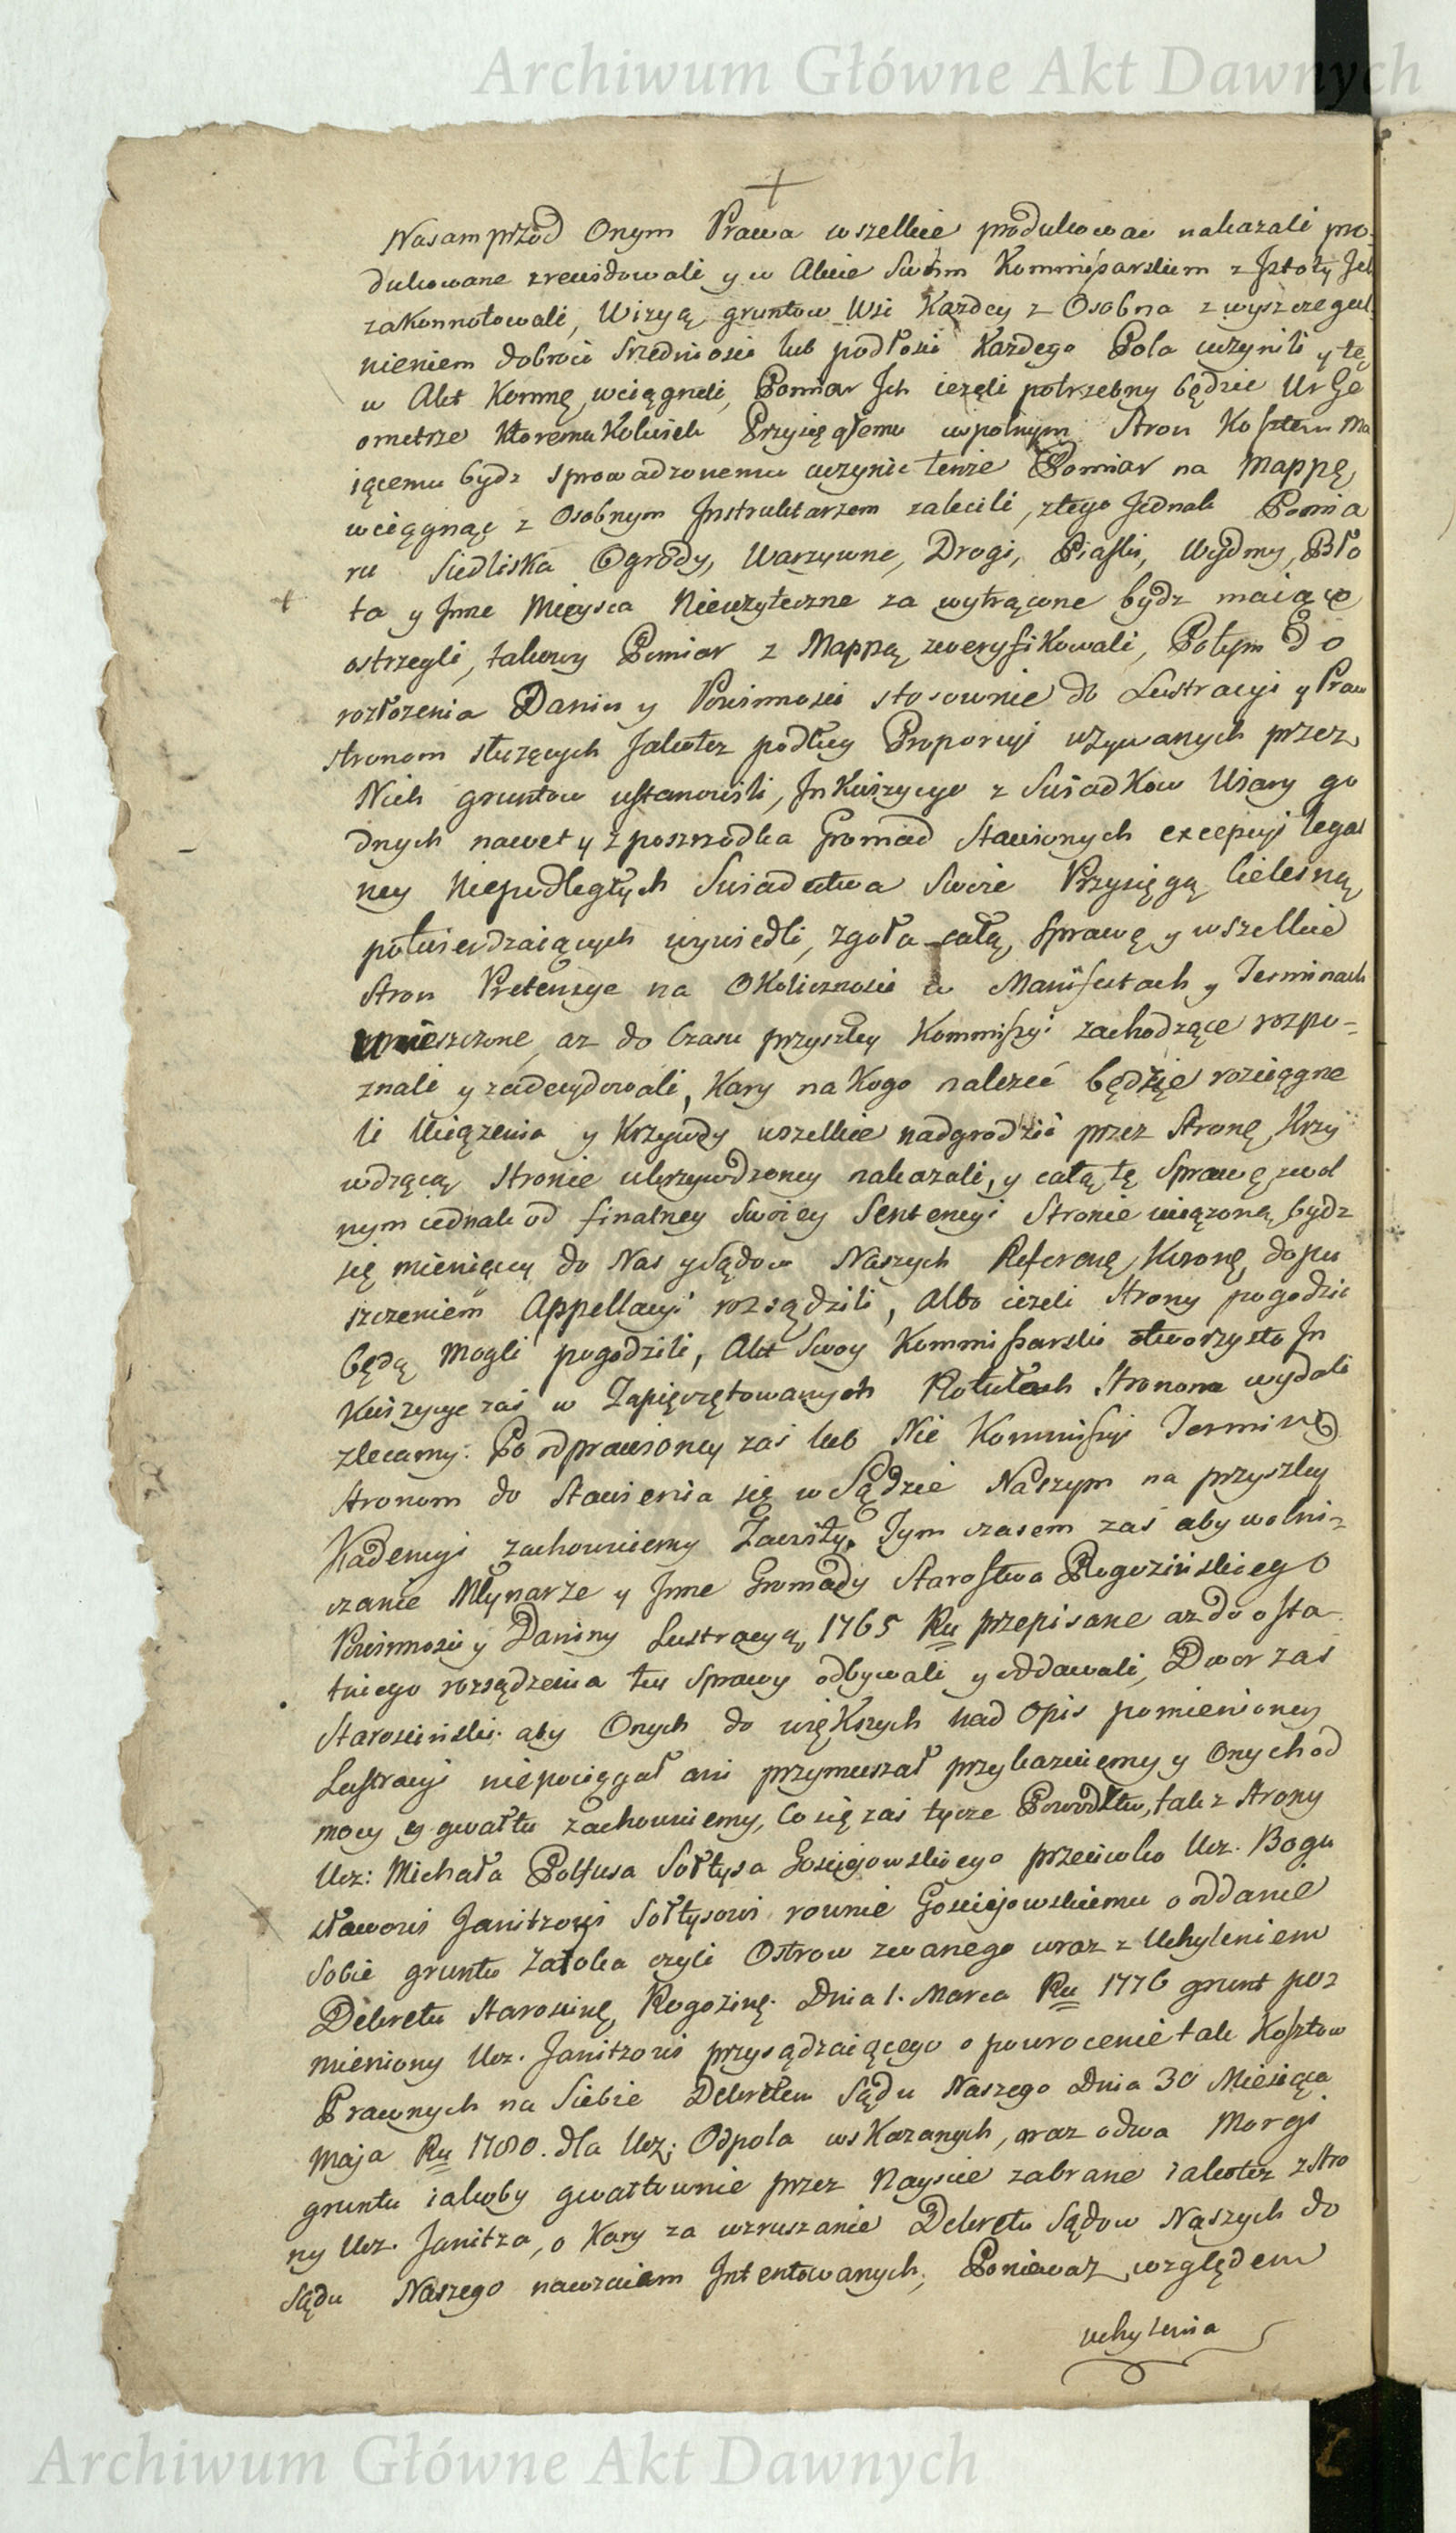 Archiwum Główne Akt Dawnych
Nasamprzód Onym Prawa wszelkie produkować nakazali pro-
dukowane zrewidowali y w Akcie Swoim Kommissarskim z Istoty Ich
zakonnotowali, Wizyą gruntow Wsi Każdey z Osobna z wyszczegul
nieniem dobroci Srzedniosci lub podłosci Każdego Pola uczynili y tę
w Akt Kommę wciągneli, Pomiar Ich ieżeli potrzebny będzie Ur Ge
ometrze Ktoremu Kolwiek Przysięgłemu wspolnym Stron Kosztem ma
iącemu bydz sprowadzonemu uczynic tenże Pomiar na Mappę
wciągnąć z Osobnym Instruktarzem zalecili, z tego Jednak Pomia
ru Siedliska Ogrody, Warzywne, Drogi, Piaski, Wydmy, Bło
ta y Inne Mieysca Nieużyteczne za wytrącone bydz maiące
ostrzegli, takowy Pomiar z Mappą zweryfikowali, Potym Do
rozłożenia Danin y Powinnosci stosownie do Lustracyi y Praw
stronom służących Jakoteż podług Proporcyi używanych przez
Nich gruntow ustanowili, Inkwizycye z Swiadkow Wiary go
dnych nawet y z poszrzodka Gromad Stawionych excepcyi legal
ney Niepodległych Swiadectwa Swoie Przysięgą Cielesną
potwierdzaiących wywiedli, zgoła całą Sprawę y wszelkie
Stron Pretensye na Okolicznosci w Manifestach y Terminach
umieszczone, aż do Czasu przyszłey Kommissyi zachodzące rozpo-
znali y zadecydowali, Kary na Kogo należeć będzie rozciągne
li Więzenia y Krzywdy wszelkie nadgrodzić przez Stronę Krzy
wdzącą Stronie ukrzywdzoney nakazali, y całą tę Sprawę zwol
nym iednak od finalney Swoiey Sentencyi Stronie uciążoną bydz
się mieniącey do Nas y Sądow Naszych Referenę Koronę dopu
szczeniem Appellacyi rozsądzili, Albo ieżeli Strony pogodzic
będą Mogli pogodzili, Akt Swoy Kommissarski otworzysto In
kwizycye zaś w Zapieczętowanych Rotułach Stronom wydali
zlecamy. Po odprawioney zaś lub Nie Kommissyi Termin
Stronom do Stawienia się w Sądzie Naszym na przyszłey
Kadencyi zachowuiemy Zawity. Tym czasem zaś aby wolni-
czanie Młynarze y Inne Gromady Starostwa Rogozińskiego
Powinnosci y Daniny Lustracyą 1765 Ru przepisane aż do osta
tniego rozsądzenia tey Sprawy odbywali y oddawali, Dwor zaś
Starosciński aby Onych do większych nad Opis pomienioney
Lustracyi niepociągał ani przymuszał przykazuiemy y Onych od
mocy y gwałtu zachowuiemy, Co się zaś tycze Powodztw, tak z Strony
Ucz: Michała Polfusa Sołtysa Gosciejowskiego przeciwko Ucz. Bogu
sławowi Janitzowi Sołtysowi rownie Gosciejowskiemu o oddanie
Sobie gruntu Zatoka czyli Ostrow zwanego wraz z Uchyleniem
Dekretu Staroscinę Rogozinę. Dnia 1. Marca Ru 1776 grunt po
mieniony Ucz. Janitzowi przysądzaiącego o powrocenie tak Kosztow
Prawnych na Siebie Dekretem Sądu Naszego Dnia 30 Miesiąca
Maja Ru 1780. dla Ucz: Odpola wskazanych, oraz o dwa Morgi
gruntu iakoby gwałtownie przez Nayscie zabrane iakoteż z Stro
ny Ucz. Janitza, o Kary za wzruszanie Dekretu Sądow Naszych do
Sądu Naszego nawzaiem Intentowanych, Ponieważ względem
uchylenia
Archiwum Główne Akt Dawnych